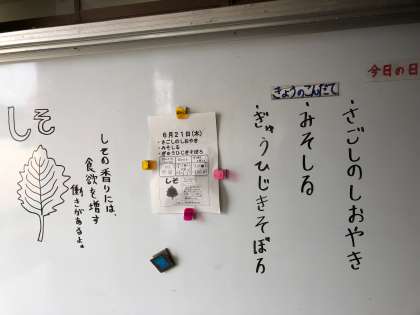 今日の日
きょうのこんだて
・さごしのしおやき
・みそしる
・ぎゅうひじきそぼろ
6月21日(木)
・さごしのしおやき
・みそしる
・ぎゅうひじきそぼろ
しそ
しその香りには、
食欲を増す
働きがあるよ。
しそ